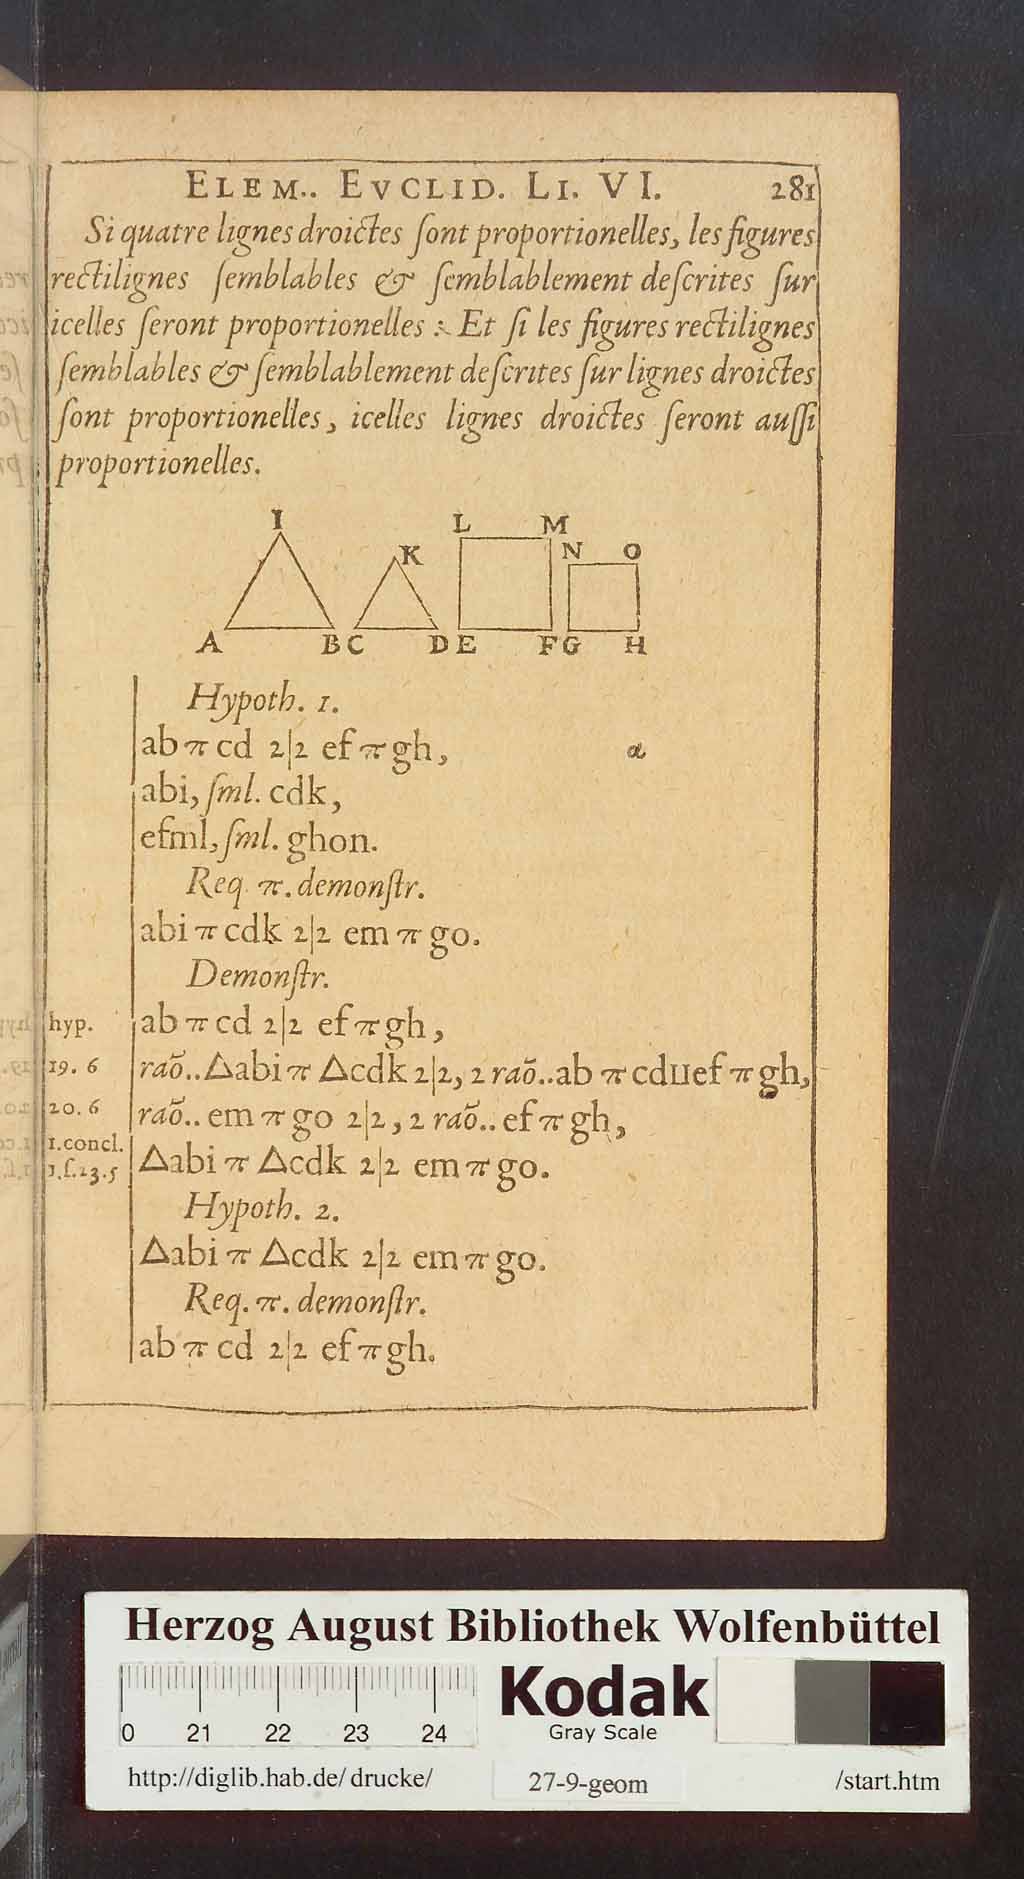 ELEM.. EVCLID. LI. VI. 281
Si quatre lignes droictes ſont proportionelles, les figures
rectilignes ſemblables & ſemblablement deſcrites ſur
icelles ſeront proportionelles :. Et ſi les figures rectilignes
ſemblables & ſemblablement deſcrites ſur lignes droictes
ſont proportionelles, icelles lignes droictes ſeront auſſi
proportionelles.
I L M
K N O
A B C D E F G H
Hypoth. 1.
ab π cd 2|2 ef π gh, α
abi, ſml. cdk,
efml, ſml. ghon.
Req. π. demonſtr.
abi π cdk 2|2 em π go.
Demonſtr.
hyp. ab π cd 2|2 ef π gh,
19. 6 raõ.. Δabi π Δcdk 2|2, 2 raõ.. ab π cd⊔ef π gh,
20. 6 raõ.. em π go 2|2, 2 raõ.. ef π gh,
1.concl.
1.ſ.23.5 Δabi π Δcdk 2|2 em π go.
Hypoth. 2.
Δabi π Δcdk 2|2 em π go.
Req. π. demonſtr.
ab π cd 2|2 ef π gh.
Herzog August Bibliothek Wolfenbüttel
0 21 22 23 24
Kodak
Gray Scale
http://diglib.hab.de/drucke/ 27-9-geom /start.htm